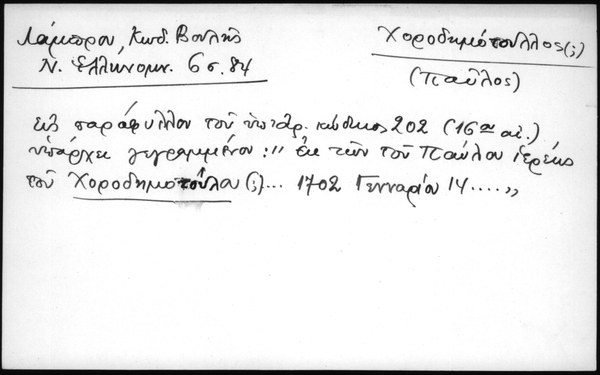 Λάμπρου, Κωδ. Βουλῆς
Ν. Ἑλληνομν. 6 σ. 84
Χοροδημόπουλλος (;)
(Παῦλος)
εἰς παράφυλλον τοῦ ὑπ' ἀρ. κώδικος 202 (16ου αἰ.)
ὑπάρχει γεγραμμένον: " ἐκ τῶν τοῦ Παύλου ἱερέως
τοῦ Χοροδημοπούλου (;)... 1702 Γενναρίου 14 .... „